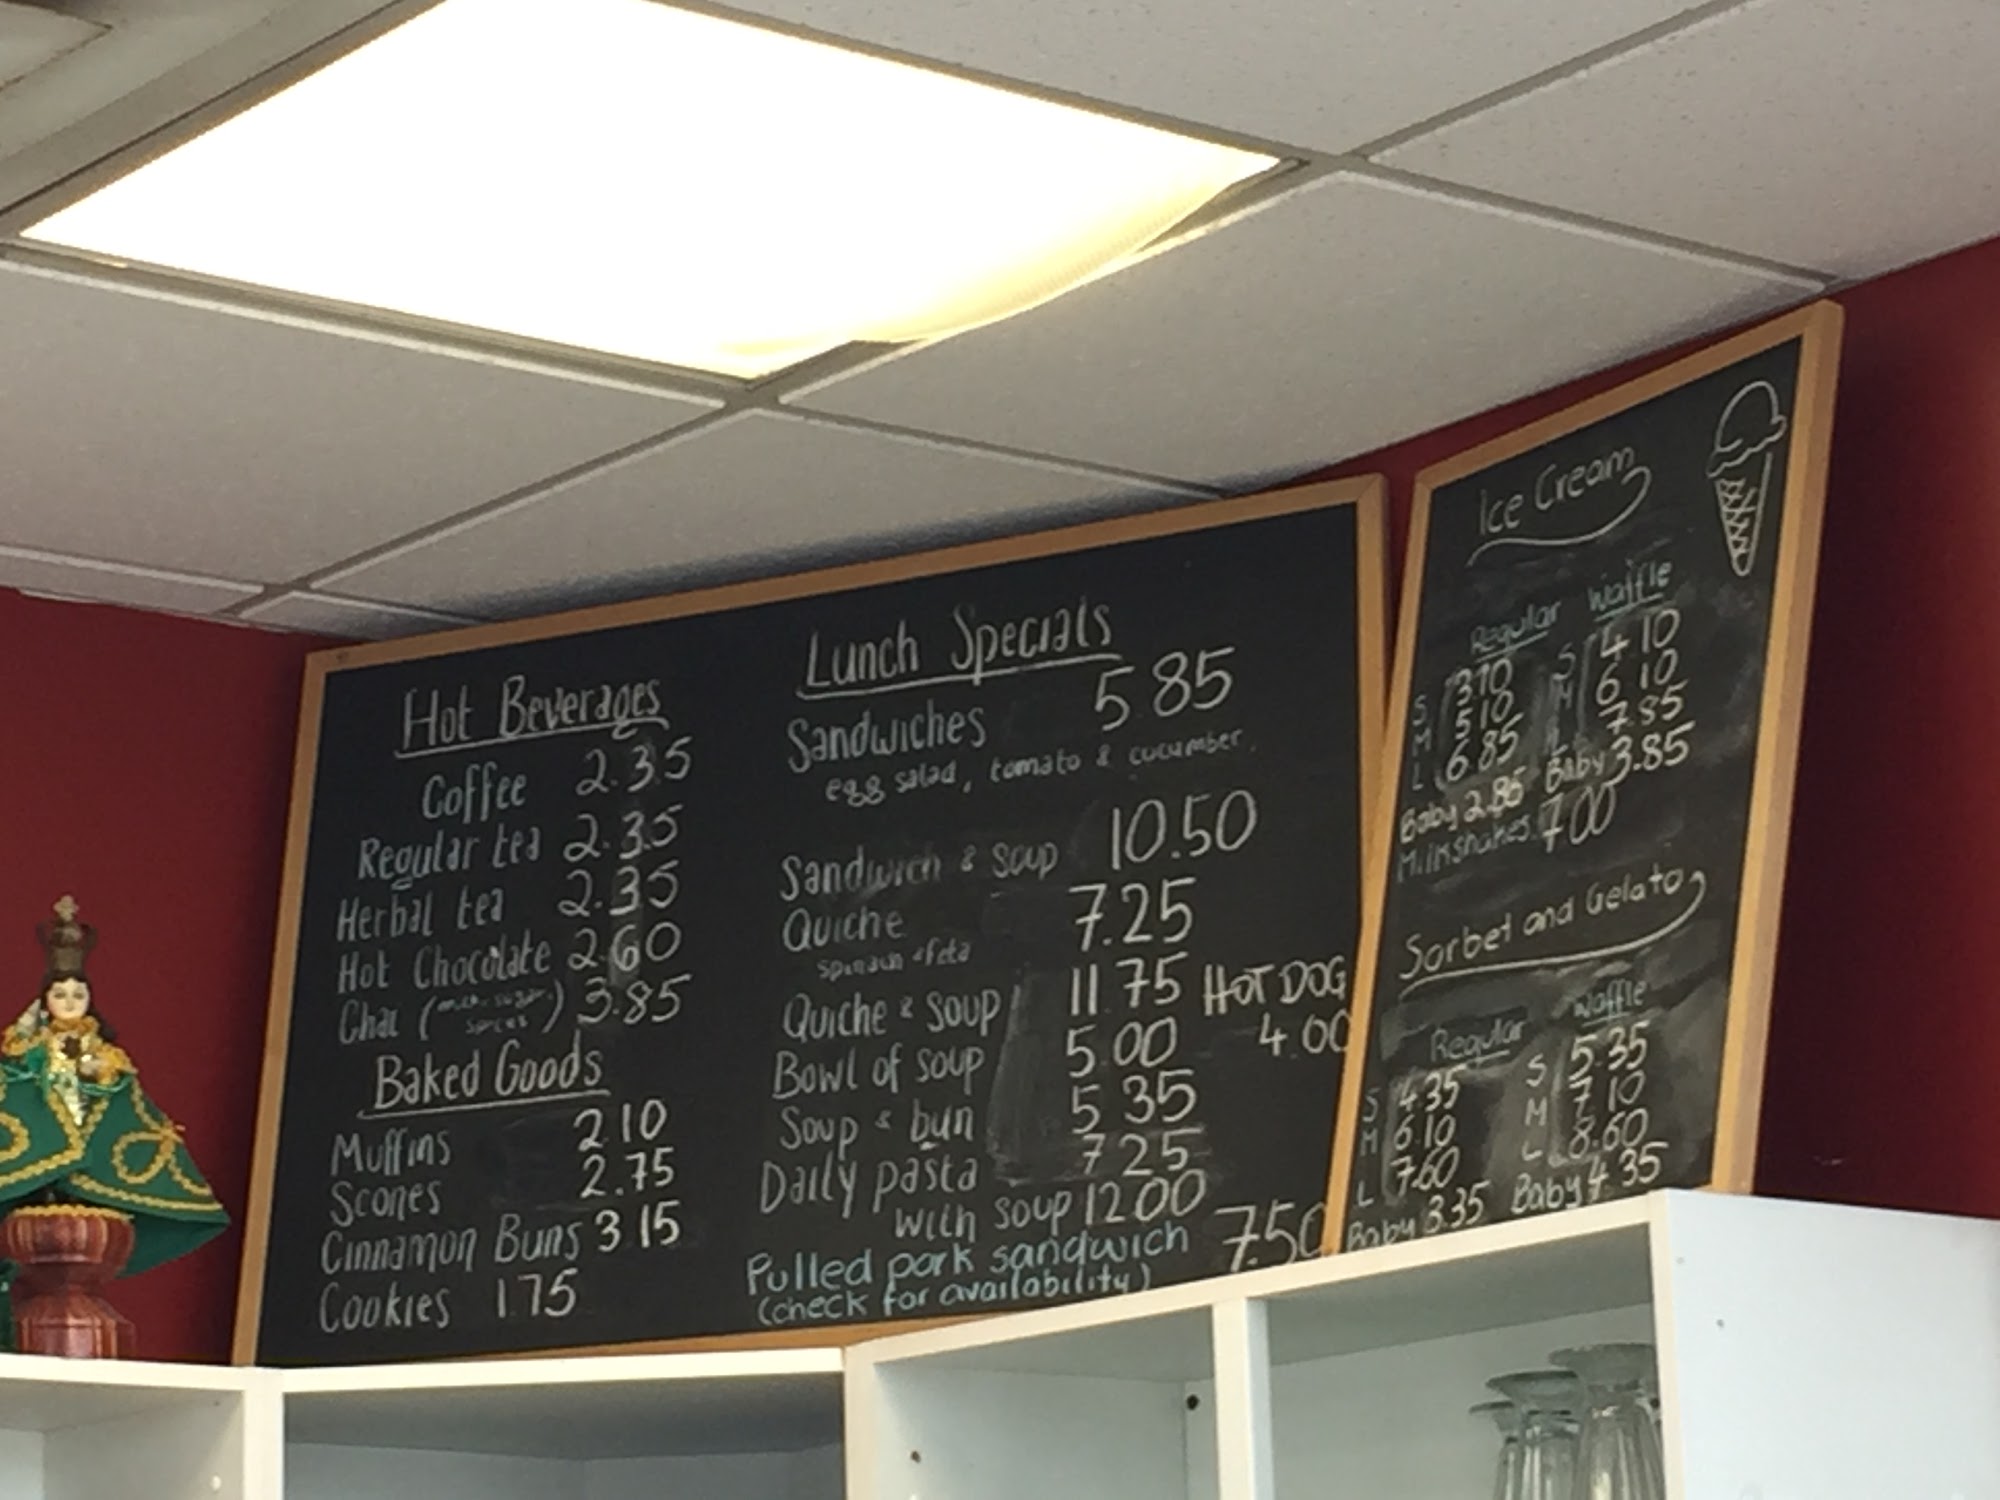 Hot Beverages
Coffee 2.35
Regular tea 2.35
Herbal tea 2.35
Hot Chocolate 2.60
Chai (milk. sugar. spices) 3.85
Baked Goods
Muffins 2.10
Scones 2.75
Cinnamon Buns 3 15
Cookies 1.75
Lunch Specials
Sandwiches 5 85
egg salad, tomato & cucumber.
Sandwich & Soup 10.50
Quiche 7.25
spinach & feta
Quiche & soup 11 75
Bowl of soup 5 00
Soup & bun 5 35
Daily pasta 7 25
with soup 12 00
Pulled pork sandwich 7.50
(check for availability)
HOT DOG
4.00
Ice Cream
Regular Waffle
S 3.10 S 4 10
M 5 10 M 6 10
L 6.85 L 7.85
Baby 2.85 Baby 3.85
Milkshakes 7.00
Sorbet and Gelato
Regular Waffle
S 4.35 S 5.35
M 6.10 M 7 10
L 7.60 L 8.60
Baby 3.35 Baby 4 35